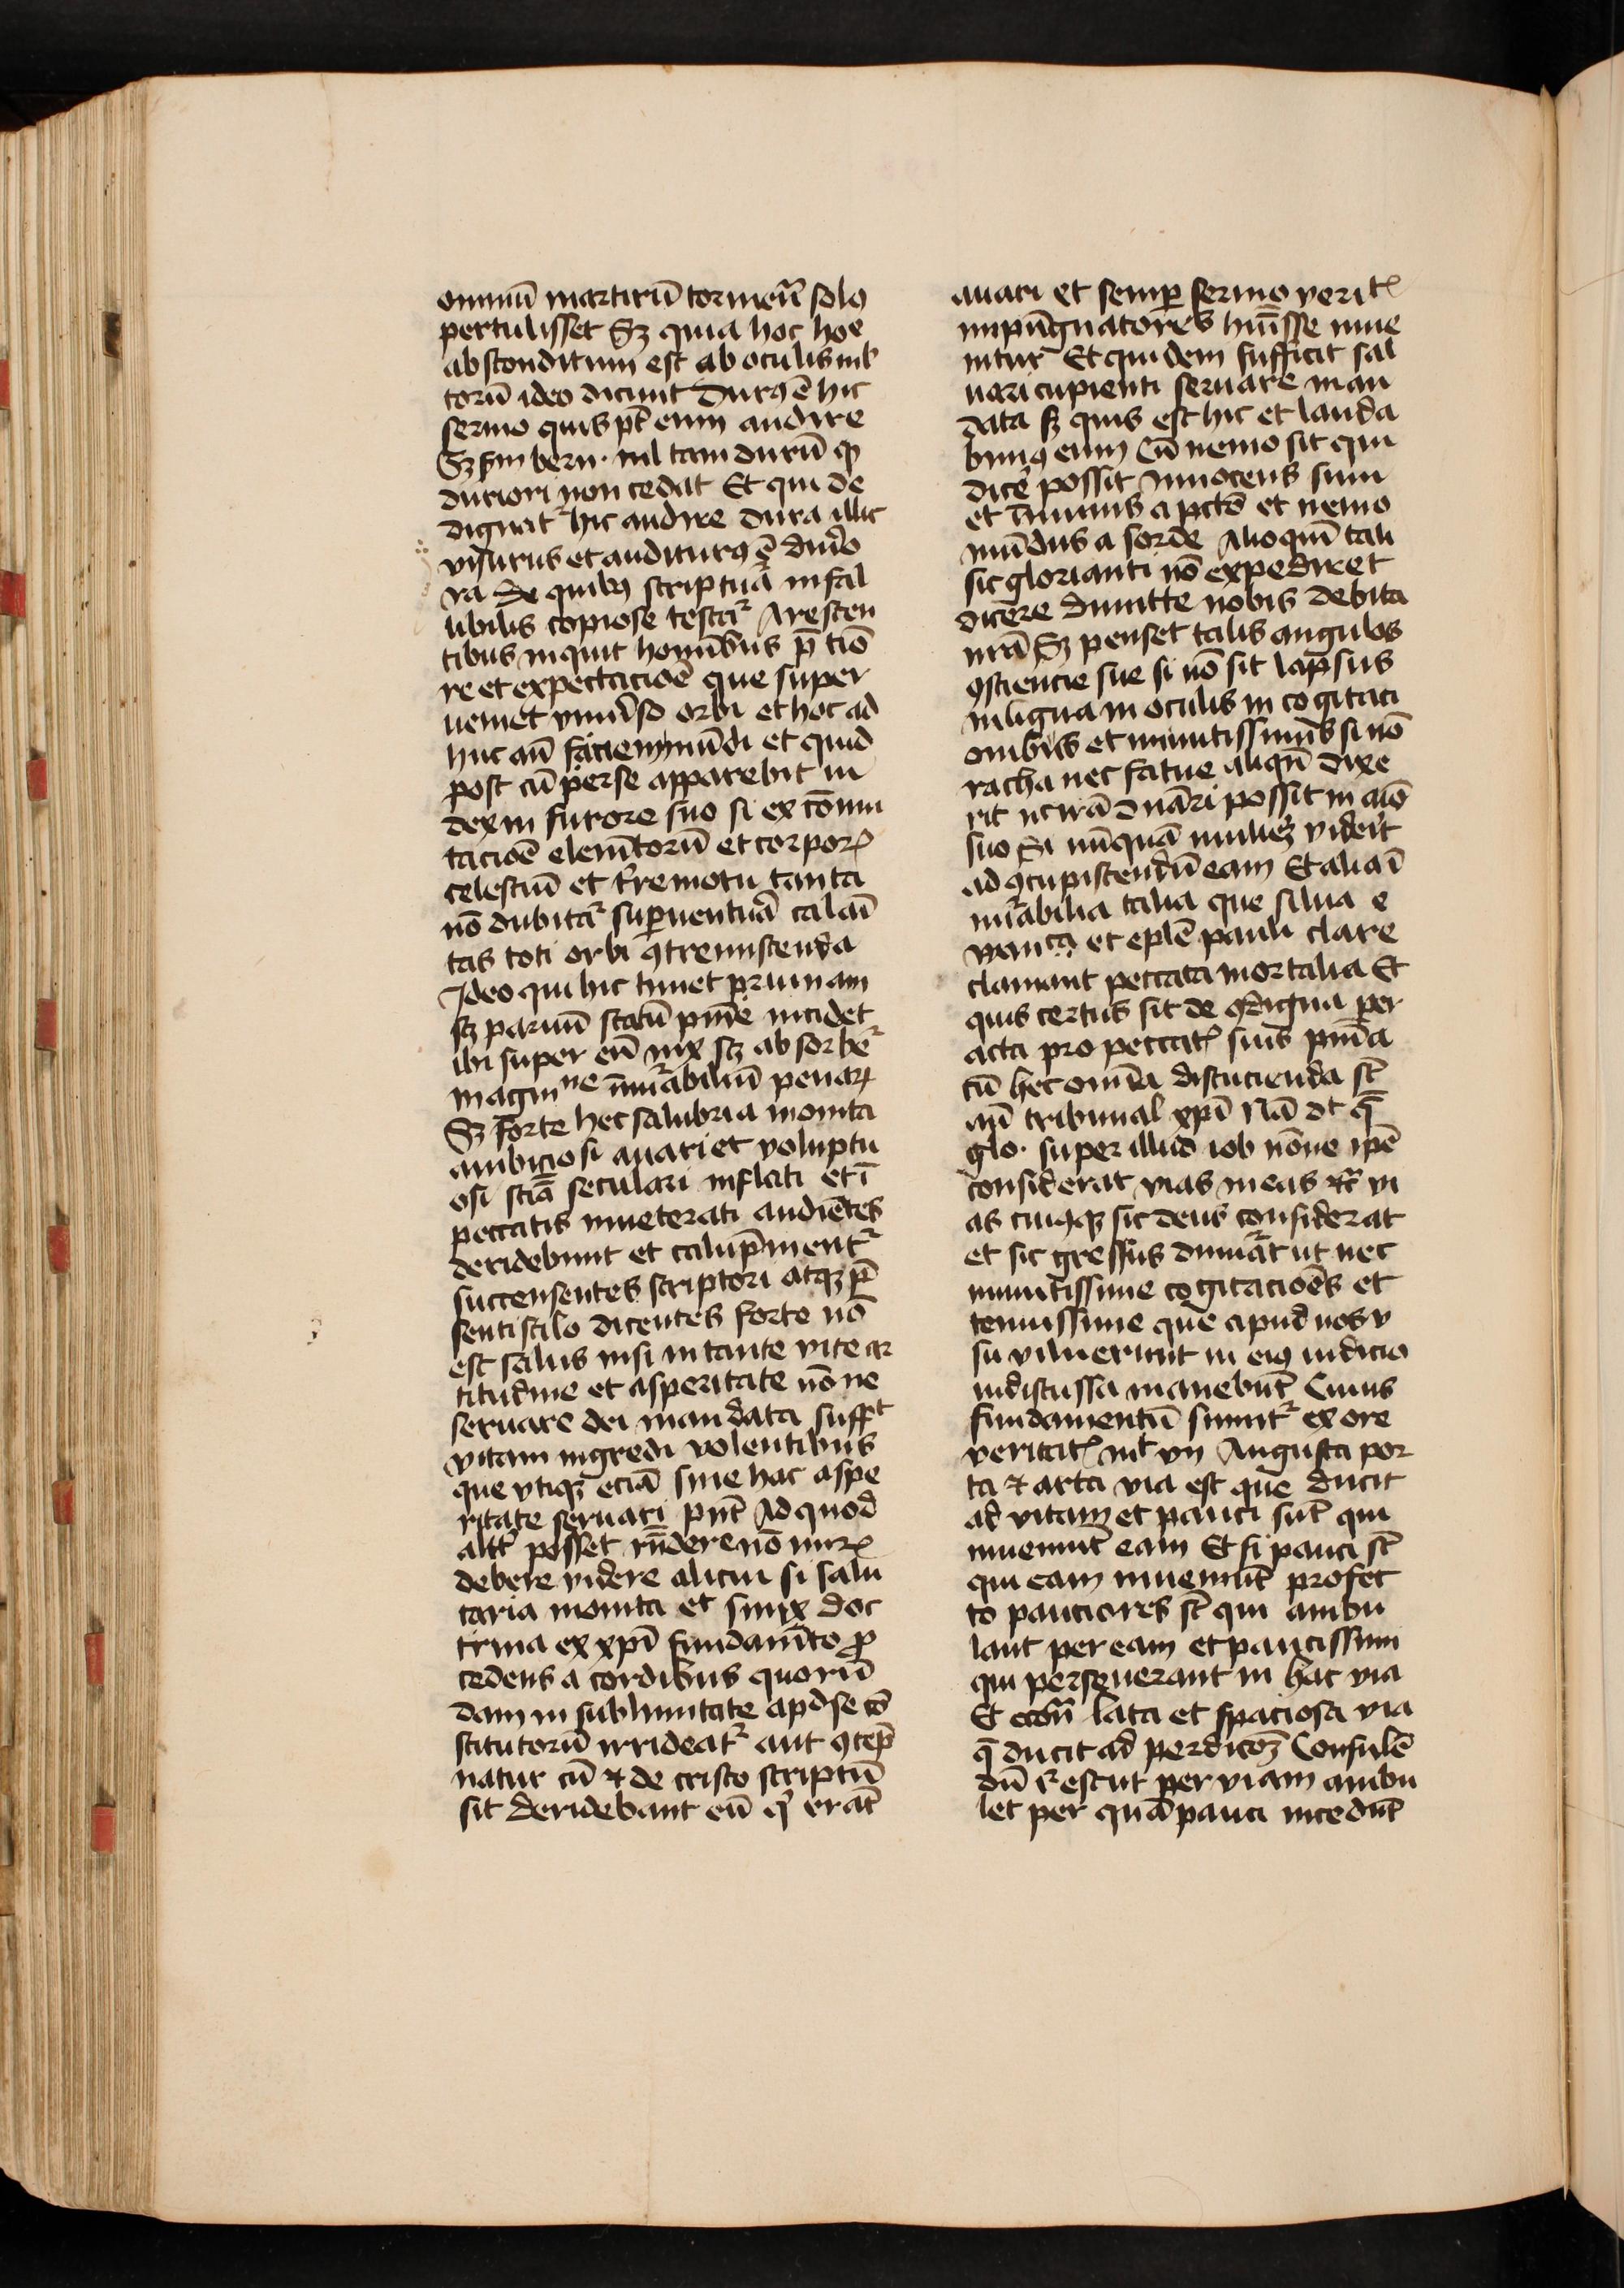 omniū martirū tormen̄ solus
pertulisset Sꝫ quia hoc hoīe
absconditum est ab oculis
torū ideo dicunt Durꝯ ē hic
sermo quis pt̄ eum audire
Sꝫ sm̄ bern. nil tam durū qꝫ
duriori non cedat Et qui de
dignatͬ hic audire dura illic
visurus et auditurꝯ ē durio
ra de quibꝯ scriptura infal
libilis copiose testatͬ Arescen
tibus inquit hominibus p̄ timo
re et expectacioē que super
ueniēt vniuerso orbi et hoc ad
huc an̄ faciem mūdi et quid
post cū per se apparebit iu
dex in furore suo si ex cōmu
tacioē elemētorū et corporꝝ
celestiū et terremotu tanta
nō dubitatͬ suꝑuentura calami
tas toti orbi ꝯtremiscenda
Ideo qui hic timet pruinam
sꝫ paruū statū pnīe incidet
ibi super eū nix sꝫ absorbetͬ
innūerabiliū penarꝝ
Sꝫ forte hec salubria monita
ambiciosi auari et voluptu
osi sciā seculari inflati et ī
peccatis inueterati audiētes
deridebunt et calūpnientͬ
succensentes scriptori atqꝫ p̄
senti stilo dicentes forte nō
est salus nisi in tante vite ar
titudine et asperitate nōne
seruare dei mandata suffᵗ
vitam ingredi volentibus
que vtiqꝫ eciā sine hac aspe
ritate seruari pn̄t Ad quod
posset rn̄dere nō mirꝝ
debere videre alicui si salu
taria monita et simplex doc
trina ex xpī fundamēto ꝓ
cedens a cordibus quorū
dam in sublimitate apd se cō
stitutorū irrideatͬ aut ꝯtēp
natur cū ⁊ de cristo scriptū
sit deridebant eū qͥ erāt
auari et semꝑ sermo veritꝭ
impūgnatores huisse inue
nitur Et quidem sufficit sal
uari cupienti seruare man
data sꝫ quis est hic et lauda
bimꝯ eum Cū nemo sit qui
dicere possit innocens sum
et īmunis a pctō et nemo
mūdus a sorde Alioquī tali
sic glorianti nō expediret
dicere dimitte nobis debita
nr̄a Sꝫ penset talis angulos
ꝯsciencie sue si nō sit lapsus
in ligua in oculis in cogitaci
onibus et minutissimis si nō
racha nec fatue aliqn̄ dixe
rit nec irā dn̄ari possit in aīo
suo Si nūquā mulierꝫ viderit
ad ꝯcupiscendū eam Et alia ī
nūerabilia talia que silua e
wan͛ca et eplē pauli clare
clamant peccata mortalia Et
quis certus sit de ꝯdigna per
acta pro peccatꝭ suis pnīa
cū hec omīa discucienda st̄
an̄ tribunal xpī Nā dt q̄
glo. super illud iob nōne ip̄e
considerat vias meas vi
as cuiꝯqꝫ sic deus considerat
et sic gressus dinūerat ut nec
minutissime cogitacioēs et
tenuissime que apud nos v
su viluerunt in eiꝯ iudicio
indiscussa manebūt Cuius
fundamentū sumitͬ ex ore
veritatꝭ mt̄ vij Angusta por
ta ⁊ arta via est que ducit
ad vitam et pauci sūt qui
inueniūt eam Et si pauci st̄
qui eam inueniūt profec
to pauciores st̄ qui ambu
lant per eam et paucissimi
qui perseuerant in hac via
Et ecōu lata et spaciosa via
q̄ ducit ad perdicōꝫ Consulē
dū ͬ est ut per viam ambu
let per quā pauci incedūt